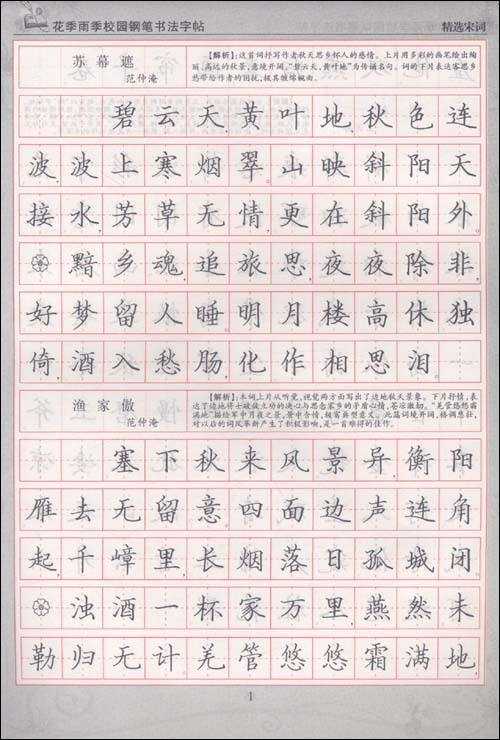 花季雨季校园钢笔书法字帖 精选宋词
苏幕遮
范仲淹
【解析】：这首词抒写作者秋天思乡怀人的感情。上片用多彩的画笔绘出绚
丽、高远的秋景，意境开阔，“碧云天，黄叶地”为传诵名句。词的下片表达客思乡
愁带给作者的困扰，极其缠绵婉曲。
碧云天黄叶地秋色连
波，波上寒烟翠。山映斜阳天
接水，芳草无情，更在斜阳外。
黯乡魂，追旅思，夜夜除非，
好梦留人睡。明月楼高休独
倚，酒入愁肠，化作相思泪。
渔家傲
范仲淹
【解析】：本词上片从听觉、视觉两方面写出了边地秋天景象。下片抒情，表
达了边地将士破敌立功的决心与思念家乡的矛盾心情，苍凉激切。“羌管悠悠霜
满地”描绘军中月夜之景，景中含情，极富典型意义。此篇词境开阔，格调悲壮，
对以后的词风革新产生了积极影响，是一首难得的佳作。
塞下秋来风景异，衡阳
雁去无留意。四面边声连角
起，千嶂里，长烟落日孤城闭。
浊酒一杯家万里，燕然未
勒归无计。羌管悠悠霜满地，
1